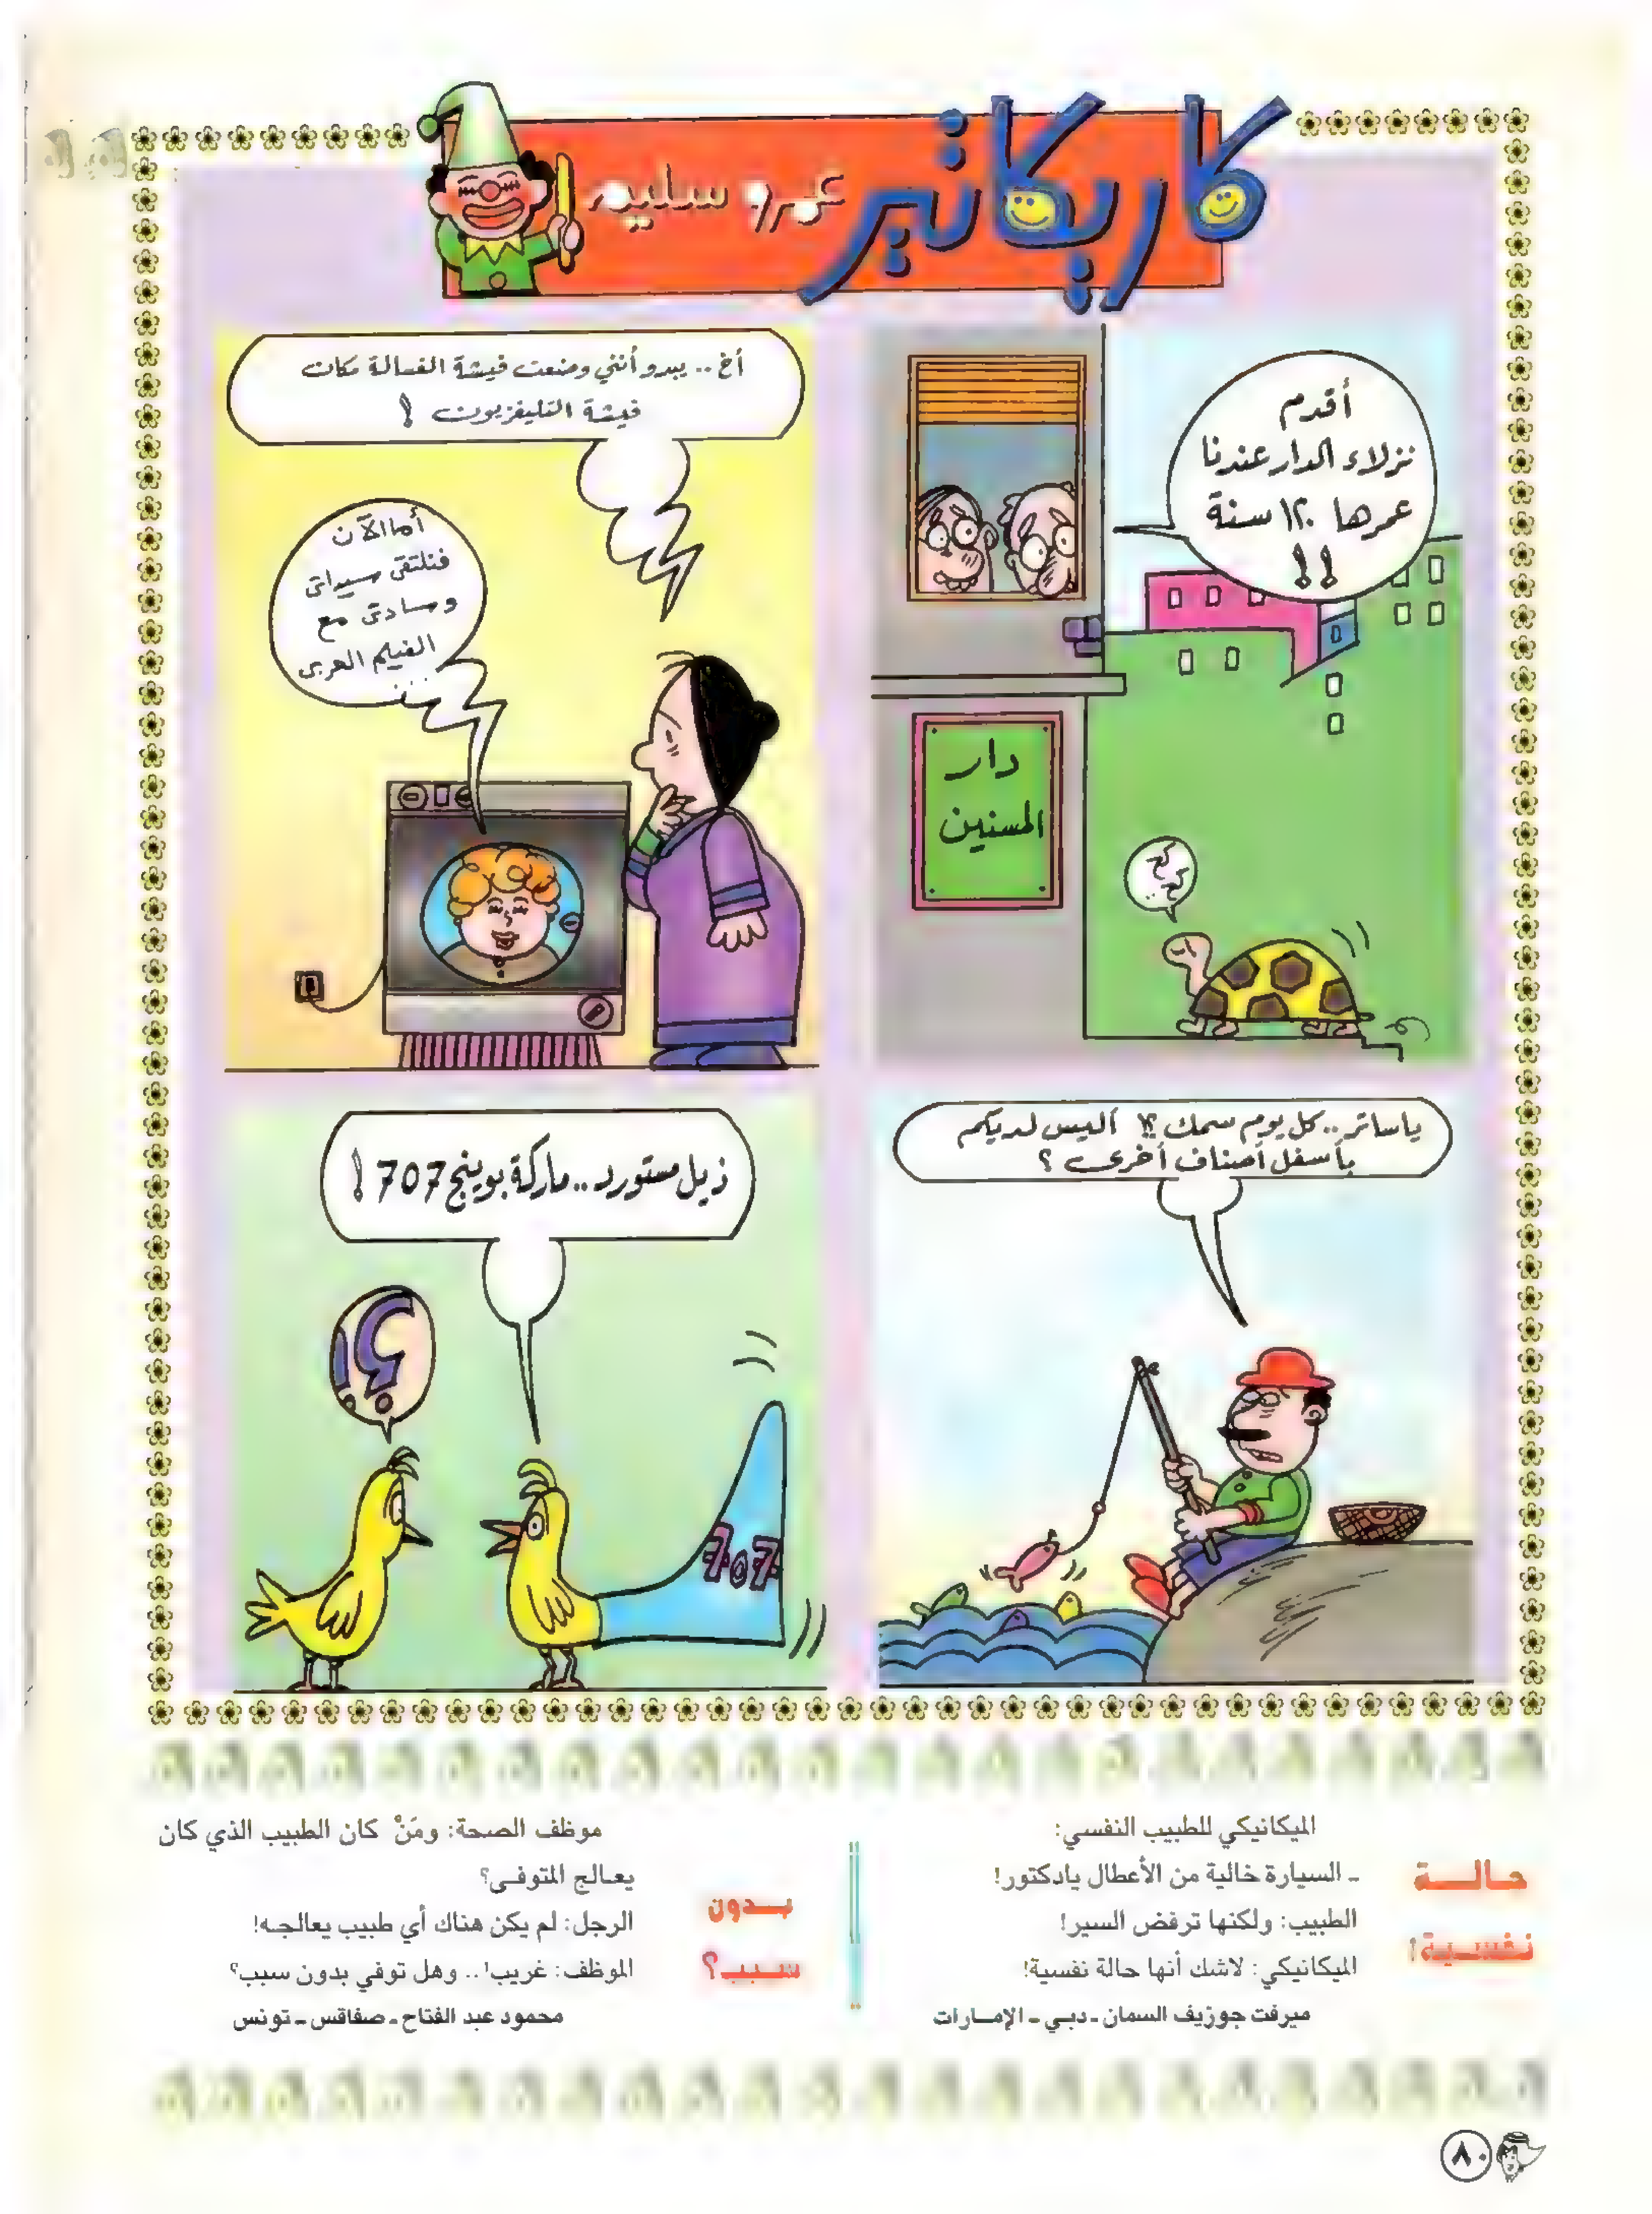 كاريكاتير
عمرو سليم
أقدم
نزلاء الدار عندنا
عمرها ١٢٠ سنة
!!
دار
المسنين
كح
كح
أخ .. يبدو أنني وضعت فيشة الغسالة مكان
فيشة التليفزيون !
أما الآن
فنلتقى سيداتى
وسادتى مع
الفيلم العربى
...
ياساتر .. كل يوم سمك ؟! أليس لديكم
بأسفل أصناف أخرى ؟
ذيل مستورد .. ماركة بوينج 707 !
؟!
707
حالة
نفسية!
الميكانيكي للطبيب النفسي:
ـ السيارة خالية من الأعطال يادكتور!
الطبيب: ولكنها ترفض السير!
الميكانيكي: لاشك أنها حالة نفسية!
ميرفت جوزيف السمان ـ دبي ـ الإمارات
بدون
سبب؟
موظف الصحة: ومَنْ كان الطبيب الذي كان
يعالج المتوفى؟
الرجل: لم يكن هناك أي طبيب يعالجه!
الموظف: غريب! .. وهل توفي بدون سبب؟
محمود عبد الفتاح ـ صفاقس ـ تونس
٨٠